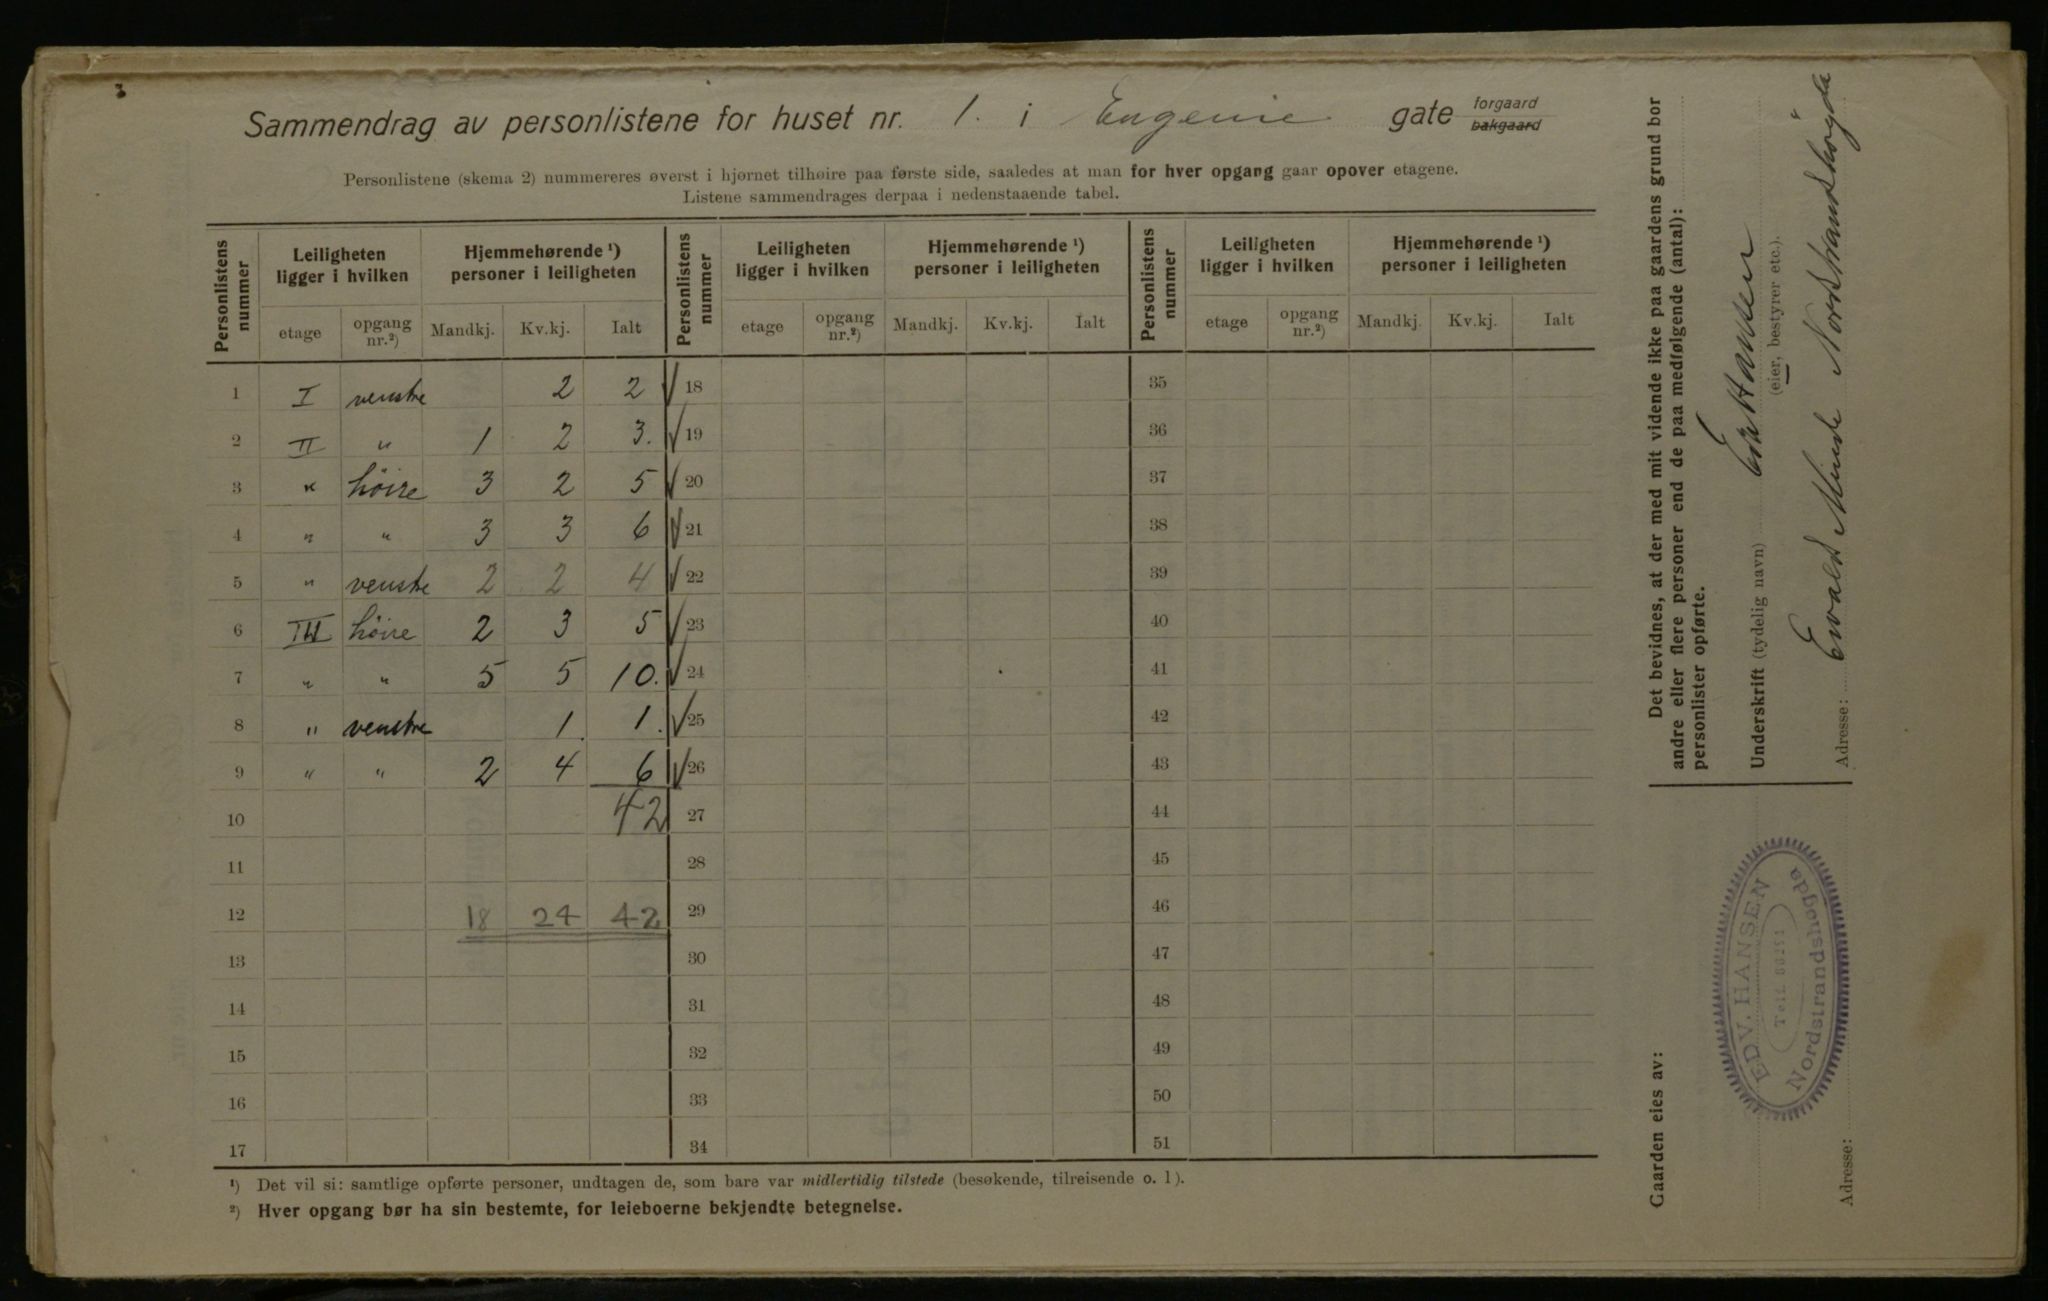 Sammendrag av personlistene for huset nr. 1. i Eugenie gate forgaard ~~bakgaard~~
Personlistene (skema 2) nummereres øverst i hjørnet tilhøire paa første side, saaledes at man for hver opgang gaar opover etagene.
Listene sammendrages derpaa i nedenstaaende tabel.
Personlistens nummer | Leiligheten ligger i hvilken | Hjemmehørende ¹) personer i leiligheten | Personlistens nummer | Leiligheten ligger i hvilken | Hjemmehørende ¹) personer i leiligheten | Personlistens nummer | Leiligheten ligger i hvilken | Hjemmehørende ¹) personer i leiligheten
etage | opgang nr.²) | Mandkj. | Kv.kj. | Ialt | etage | opgang nr.²) | Mandkj. | Kv.kj. | Ialt | etage | opgang nr.²) | Mandkj. | Kv.kj. | Ialt
1 I venstre 2 2 ✓ 18 35
2 II " 1 2 3. ✓ 19 36
3 " høire 3 2 5 ✓ 20 37
4 " " 3 3 6 ✓ 21 38
5 " venstre 2 2 4 ✓ 22 39
6 III høire 2 3 5 ✓ 23 40
7 " " 5 5 10. ✓ 24 41
8 " venstre 1. 1. ✓ 25 42
9 " " 2 4 6 ✓ 26 43
10 42 27 44
11 28 45
12 18 24 42 29 46
13 30 47
14 31 48
15 32 49
16 33 50
17 34 51
¹) Det vil si: samtlige opførte personer, undtagen de, som bare var midlertidig tilstede (besøkende, tilreisende o. l).
²) Hver opgang bør ha sin bestemte, for leieboerne bekjendte betegnelse.
Det bevidnes, at der med mit vidende ikke paa gaardens grund bor
andre eller flere personer end de paa medfølgende (antal):
personlister opførte.
Underskrift (tydelig navn) Hansen
(eier, bestyrer etc.).
Adresse: Evalds Minde Nordstrandshøgda
Gaarden eies av:
EDV. HANSEN
Nordstrandshøgda
Adresse: